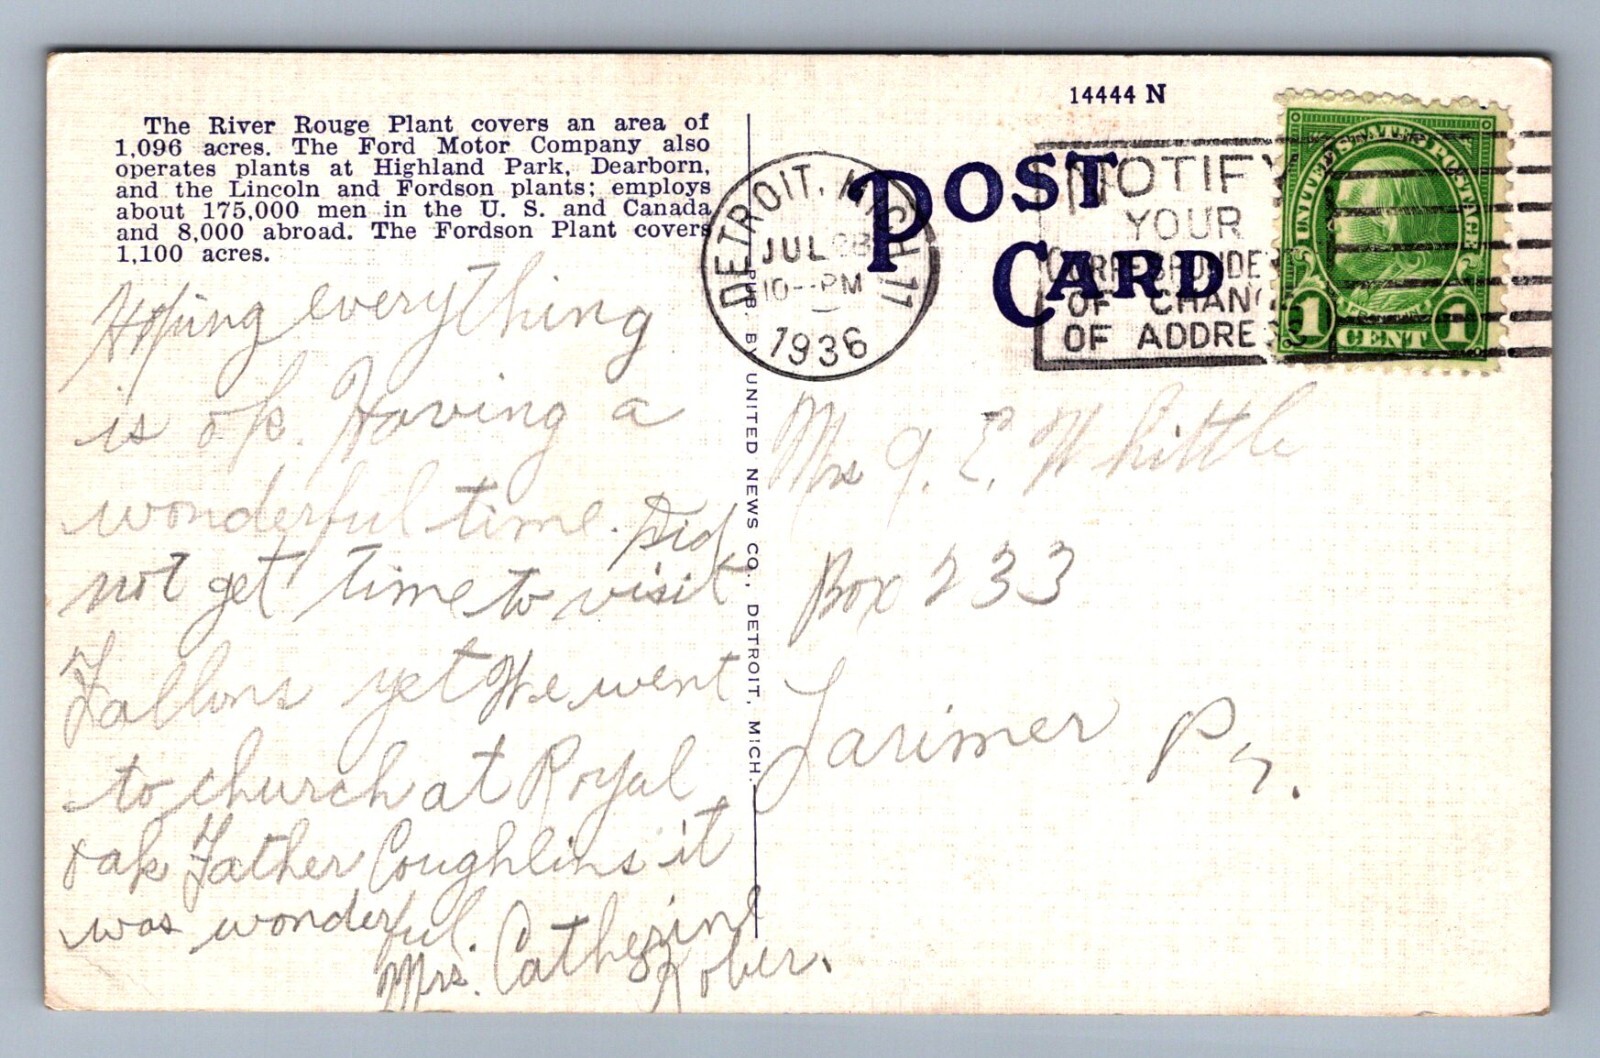 The River Rouge Plant covers an area of
1,096 acres. The Ford Motor Company also
operates plants at Highland Park, Dearborn,
and the Lincoln and Fordson plants; employs
about 175,000 men in the U. S. and Canada
and 8,000 abroad. The Fordson Plant covers
1,100 acres.
Hoping everything
is ok. Having a
wonderful time. Did
not get time to visit
Fallons yet We went
to church at Royal
oak Father Coughlins it
was wonderful.
Mrs. Catherine
Rober.
PUB. BY UNITED NEWS CO., DETROIT, MICH.
14444 N
POST
CARD
DETROIT, MICH 11
JUL 28
10--PM
1936
NOTIFY
YOUR
OF CHANG
OF ADDRESS
UNITED STATES POSTAGE
FRANKLIN
1 CENT 1
Mrs J. E. Whittle
Box 233
Larimer Pa.